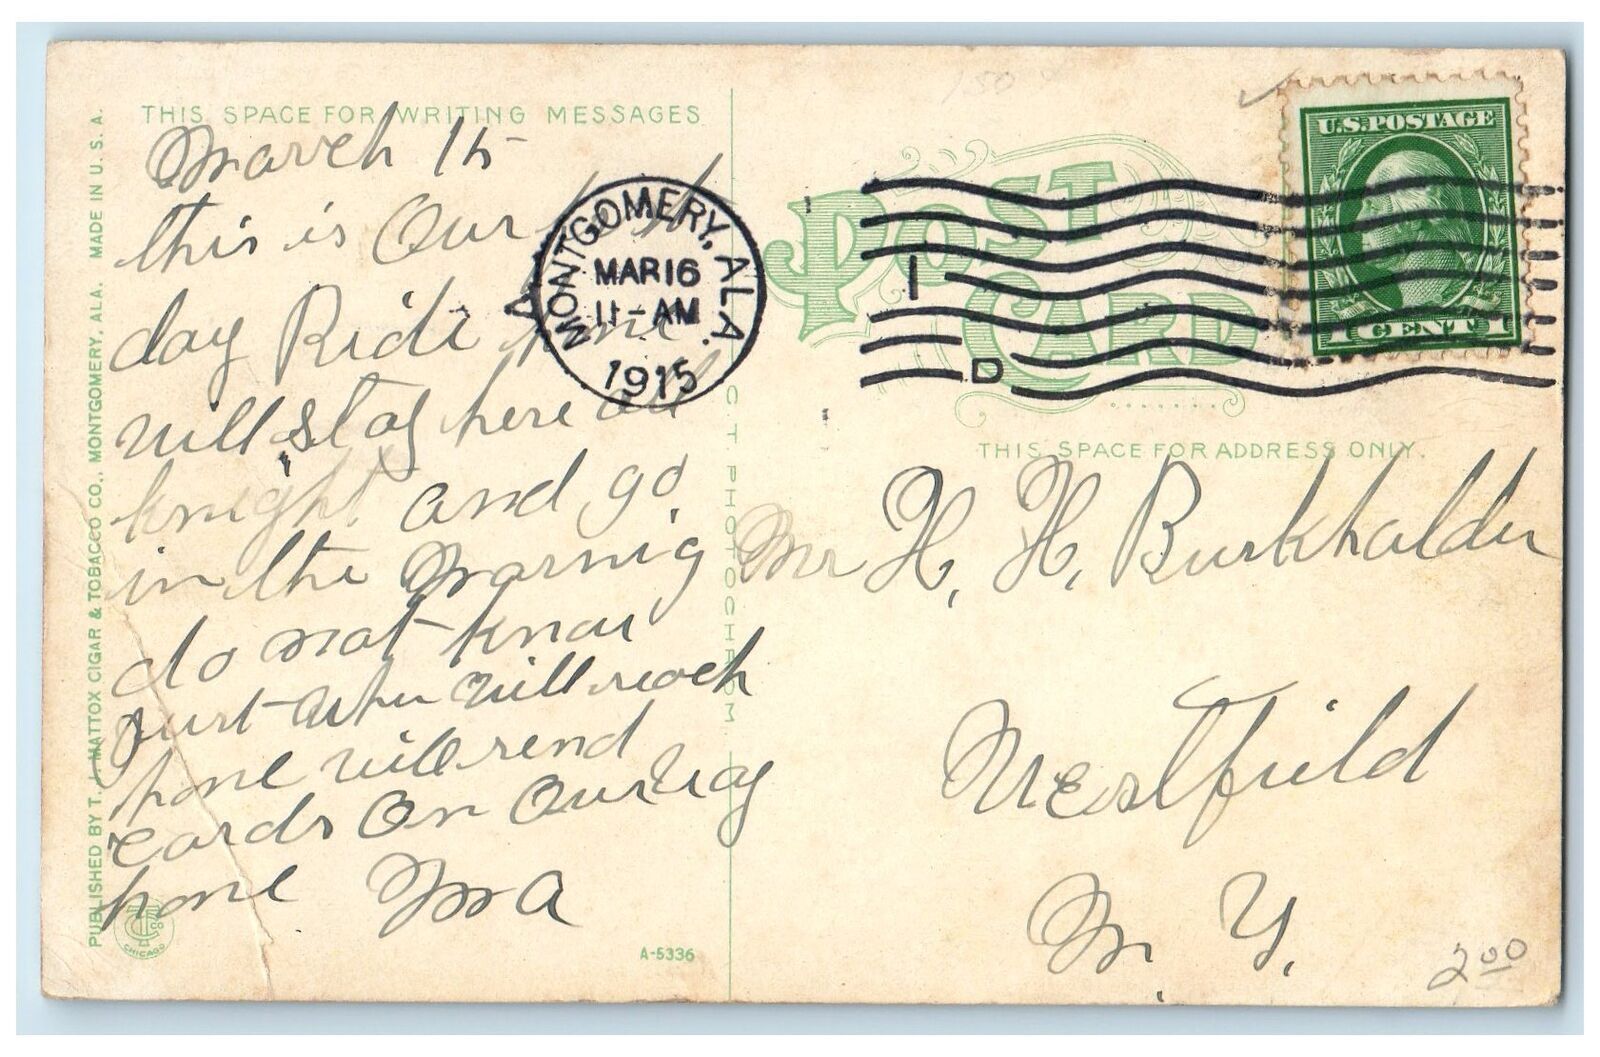 THIS SPACE FOR WRITING MESSAGES
March 15
this is Our
day Ride home
will stay here all
knight and go
in the Marnig
do not know
Just When Will reach
home will send
cards On Our Way
home Ma
PUBLISHED BY T. J. MATTOX CIGAR & TOBACCO CO., MONTGOMERY, ALA. MADE IN U. S. A.
CHICAGO
A-5336
C. T. PHOTOCHROM
MONTGOMERY, ALA.
A
MAR 16
11-AM
1915
1
D
150
POST CARD
U.S. POSTAGE
1 CENT 1
THIS SPACE FOR ADDRESS ONLY.
Mr H. H. Burkhalder
Westfield
N. Y.
2.00